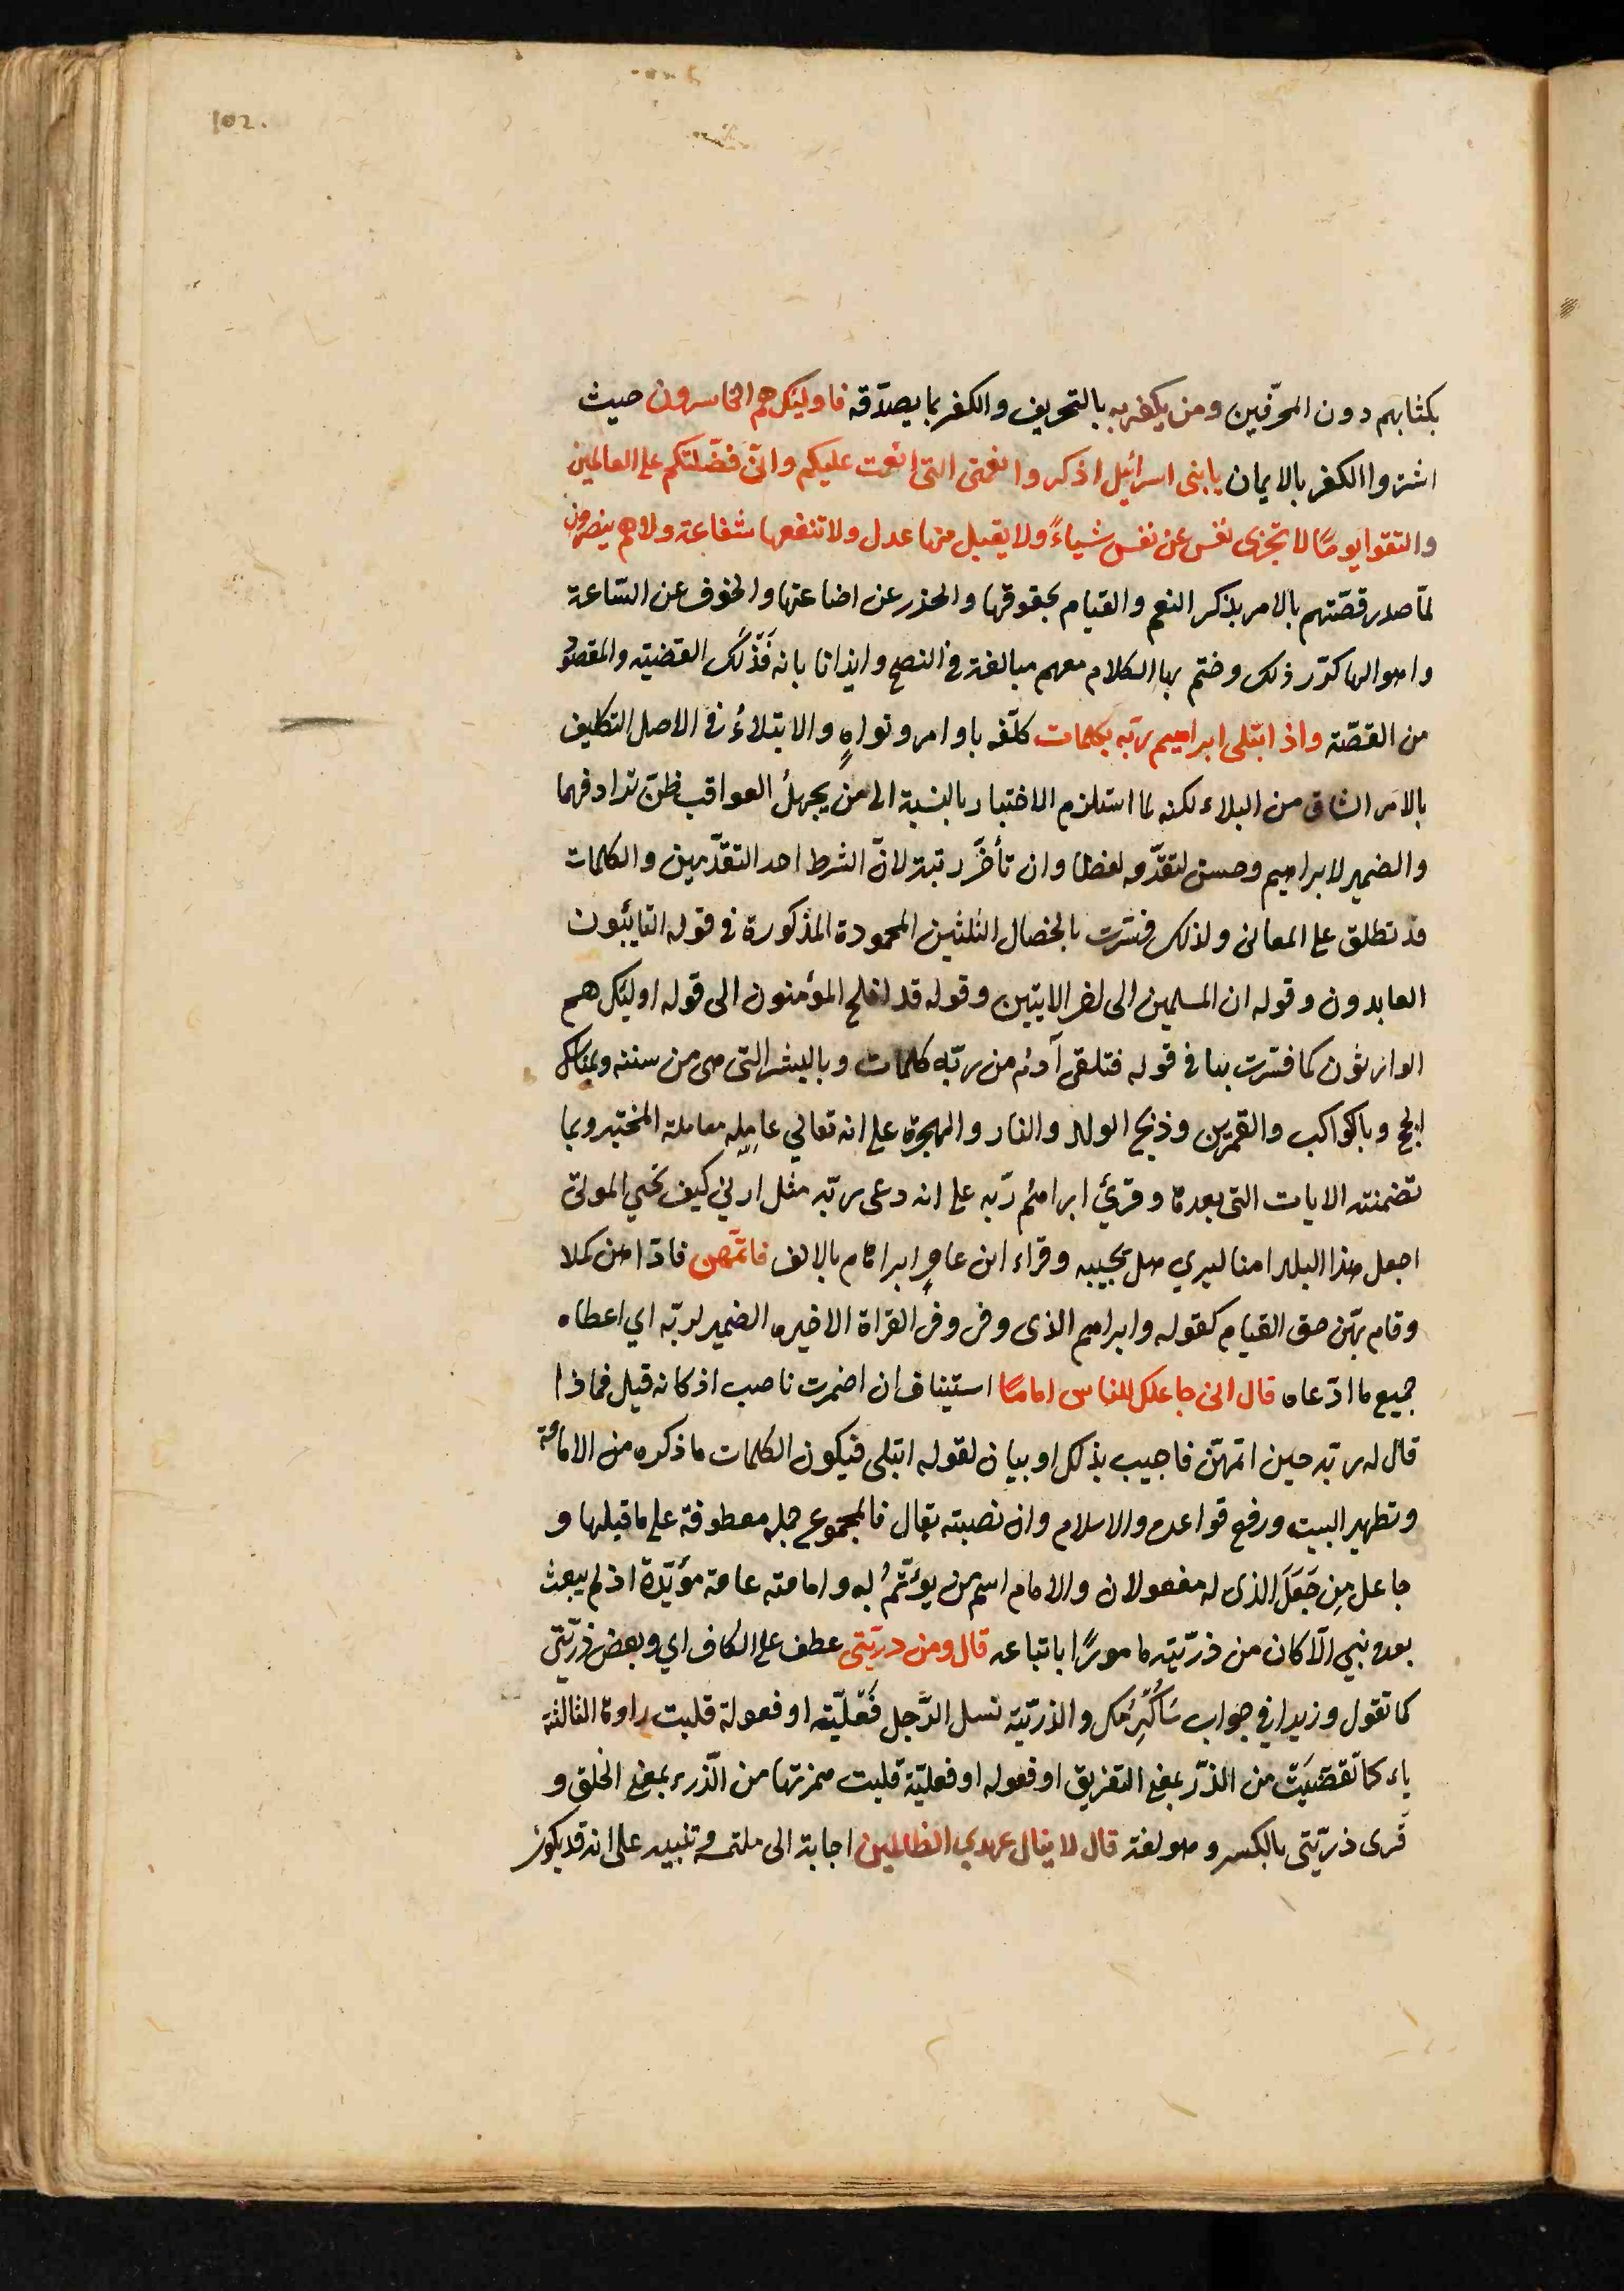 102.
بكتابهم دون المحرّفين ومن يكفر به بالتحريف والكفر بما يصدّقه فاولئك هم الخاسرون حيث
اشتروا الكفر بالايمان يا بنى اسرائيل اذكروا نعمتى التى انعمت عليكم وانّى فضّلتكم على العالمين
والتقوا يومًا لا تجزى نفس عن نفس شياءً ولا يقبل منها عدل ولا تنفعها شفاعة ولا هم ينصرون
لمّا صدر قصّتهم بالامر بذكر النعم والقيام بحقوقها والحذر عن اضاعتها والخوف عن السّاعة
واهوالها كرّر ذلك وختم بها الكلام معهم مبالغة فى النصح وايذانا بانه فَذْلَكَ القضيّه والمقصوُد
من القصّة واذ ابتلى ابراهيم ربّه بكلمات كلّفه باوامر ونواهٍ والابتلاءُ فى الاصل التكليف
بالامر الشاق من البلاء لكنه لما استلزم الاختبار بالنسبة الى من يجهلُ العواقب ظنّ ترادفهما
والضمير لابراهيم وحسن لتقدّمه لفظا وان تأخّر رتبة لانّ الشرط احد التقدّمين والكلمات
قد تطلق على المعانى ولذلك فسّرت بالخصال الثلثين المحمودة المذكورة فى قوله التايبون
العابدون وقوله ان المسلمين الى اخر الايتين وقوله قد افلح المؤمنون الى قوله اوليك هم
الوارثون كما فسّرت بها فى قوله فتلقى آدم من ربّه كلمات وبالعشر التى هى من سننه وبمناسك
الحج وبالكواكب والقمرين وذبح الولد والنار والهجرة على انه تعالي عامله معاملة المختبر وبما
تضمنته الايات التى بعدها وقرئ ابراهيُم ربّه على انه دعى ربّه مثل ارني كيف تحيي الموتى
اجعل هذا البلد امنا ليري هل يجيبه وقراء ابن عامرٍ ابراهام بالالف فاتمّهن فادّاهن كملا
وقام بهّن حق القيام كقوله وابراهيم الذى وفى وفى القراة الاخيره الضمير لربّه اي اعطاه
جميع ما ادّعاه قال انى جاعلك للناس امامًا استيناف ان اضمرت ناصب اذ كانه قيل فماذا
قال له ربّه حين اتمهنّ فاجيب بذلك او بيان لقوله ابتلى فيكون الكلمات ما ذكره من الامامة
وتطهير البيت ورفع قواعده والاسلام وان نصبته بقال فالمجموع جمله معطوفة على ما قبلها و
جاعل مِن جَعَلَ الذى له مفعولان والامام اسم من يوءتّمُ به وامامته عامة مؤبّدة اذ لم يبعث
بعده نبي الّا كان من ذرّيّته مامورًا باتباعه قال ومن درّيّتى عطف على الكاف اي وبعض ذرّيّتي
كما تقول وزيدا في جواب سَاُكْرِمُك والذرّيّة نسل الرَّجل فُعْليّه او فعولة قلبت راوها الثالثة
ياء كما تقضّيَتْ من الذرّ بمعنى التفريق او فعوله او فعليّة قلبت همزتها من الذّرء بمعنى الخلق و
قُرى ذرّيّتى بالكسر وهو لغة قال لا ينال عهدي الظالمين اجابة الى ملتمسه وتنبيه على انه قد يكون